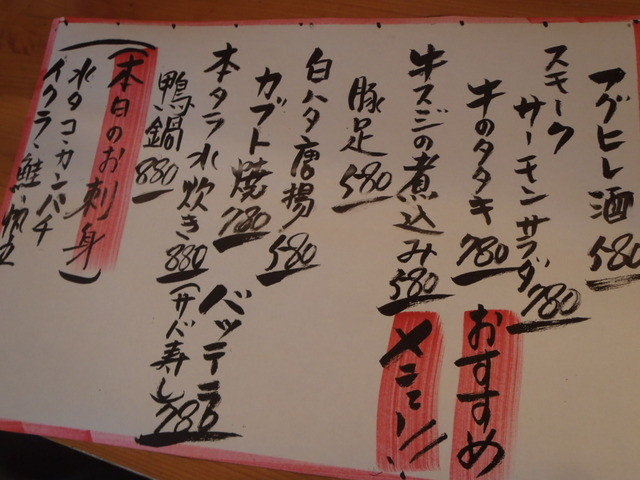 フグヒレ酒 580
スモーク
サーモンサラダ 780
牛のタタキ 780
おすすめ
メニュー
牛スジの煮込み 580
豚足 580
白ハタ唐揚 580
カブト焼 780
本タラ水炊き 880
鴨鍋 880
バッテラ
(サバ寿し) 780
(本日のお刺身)
水タコ・カンパチ
イクラ・鮭・帆立